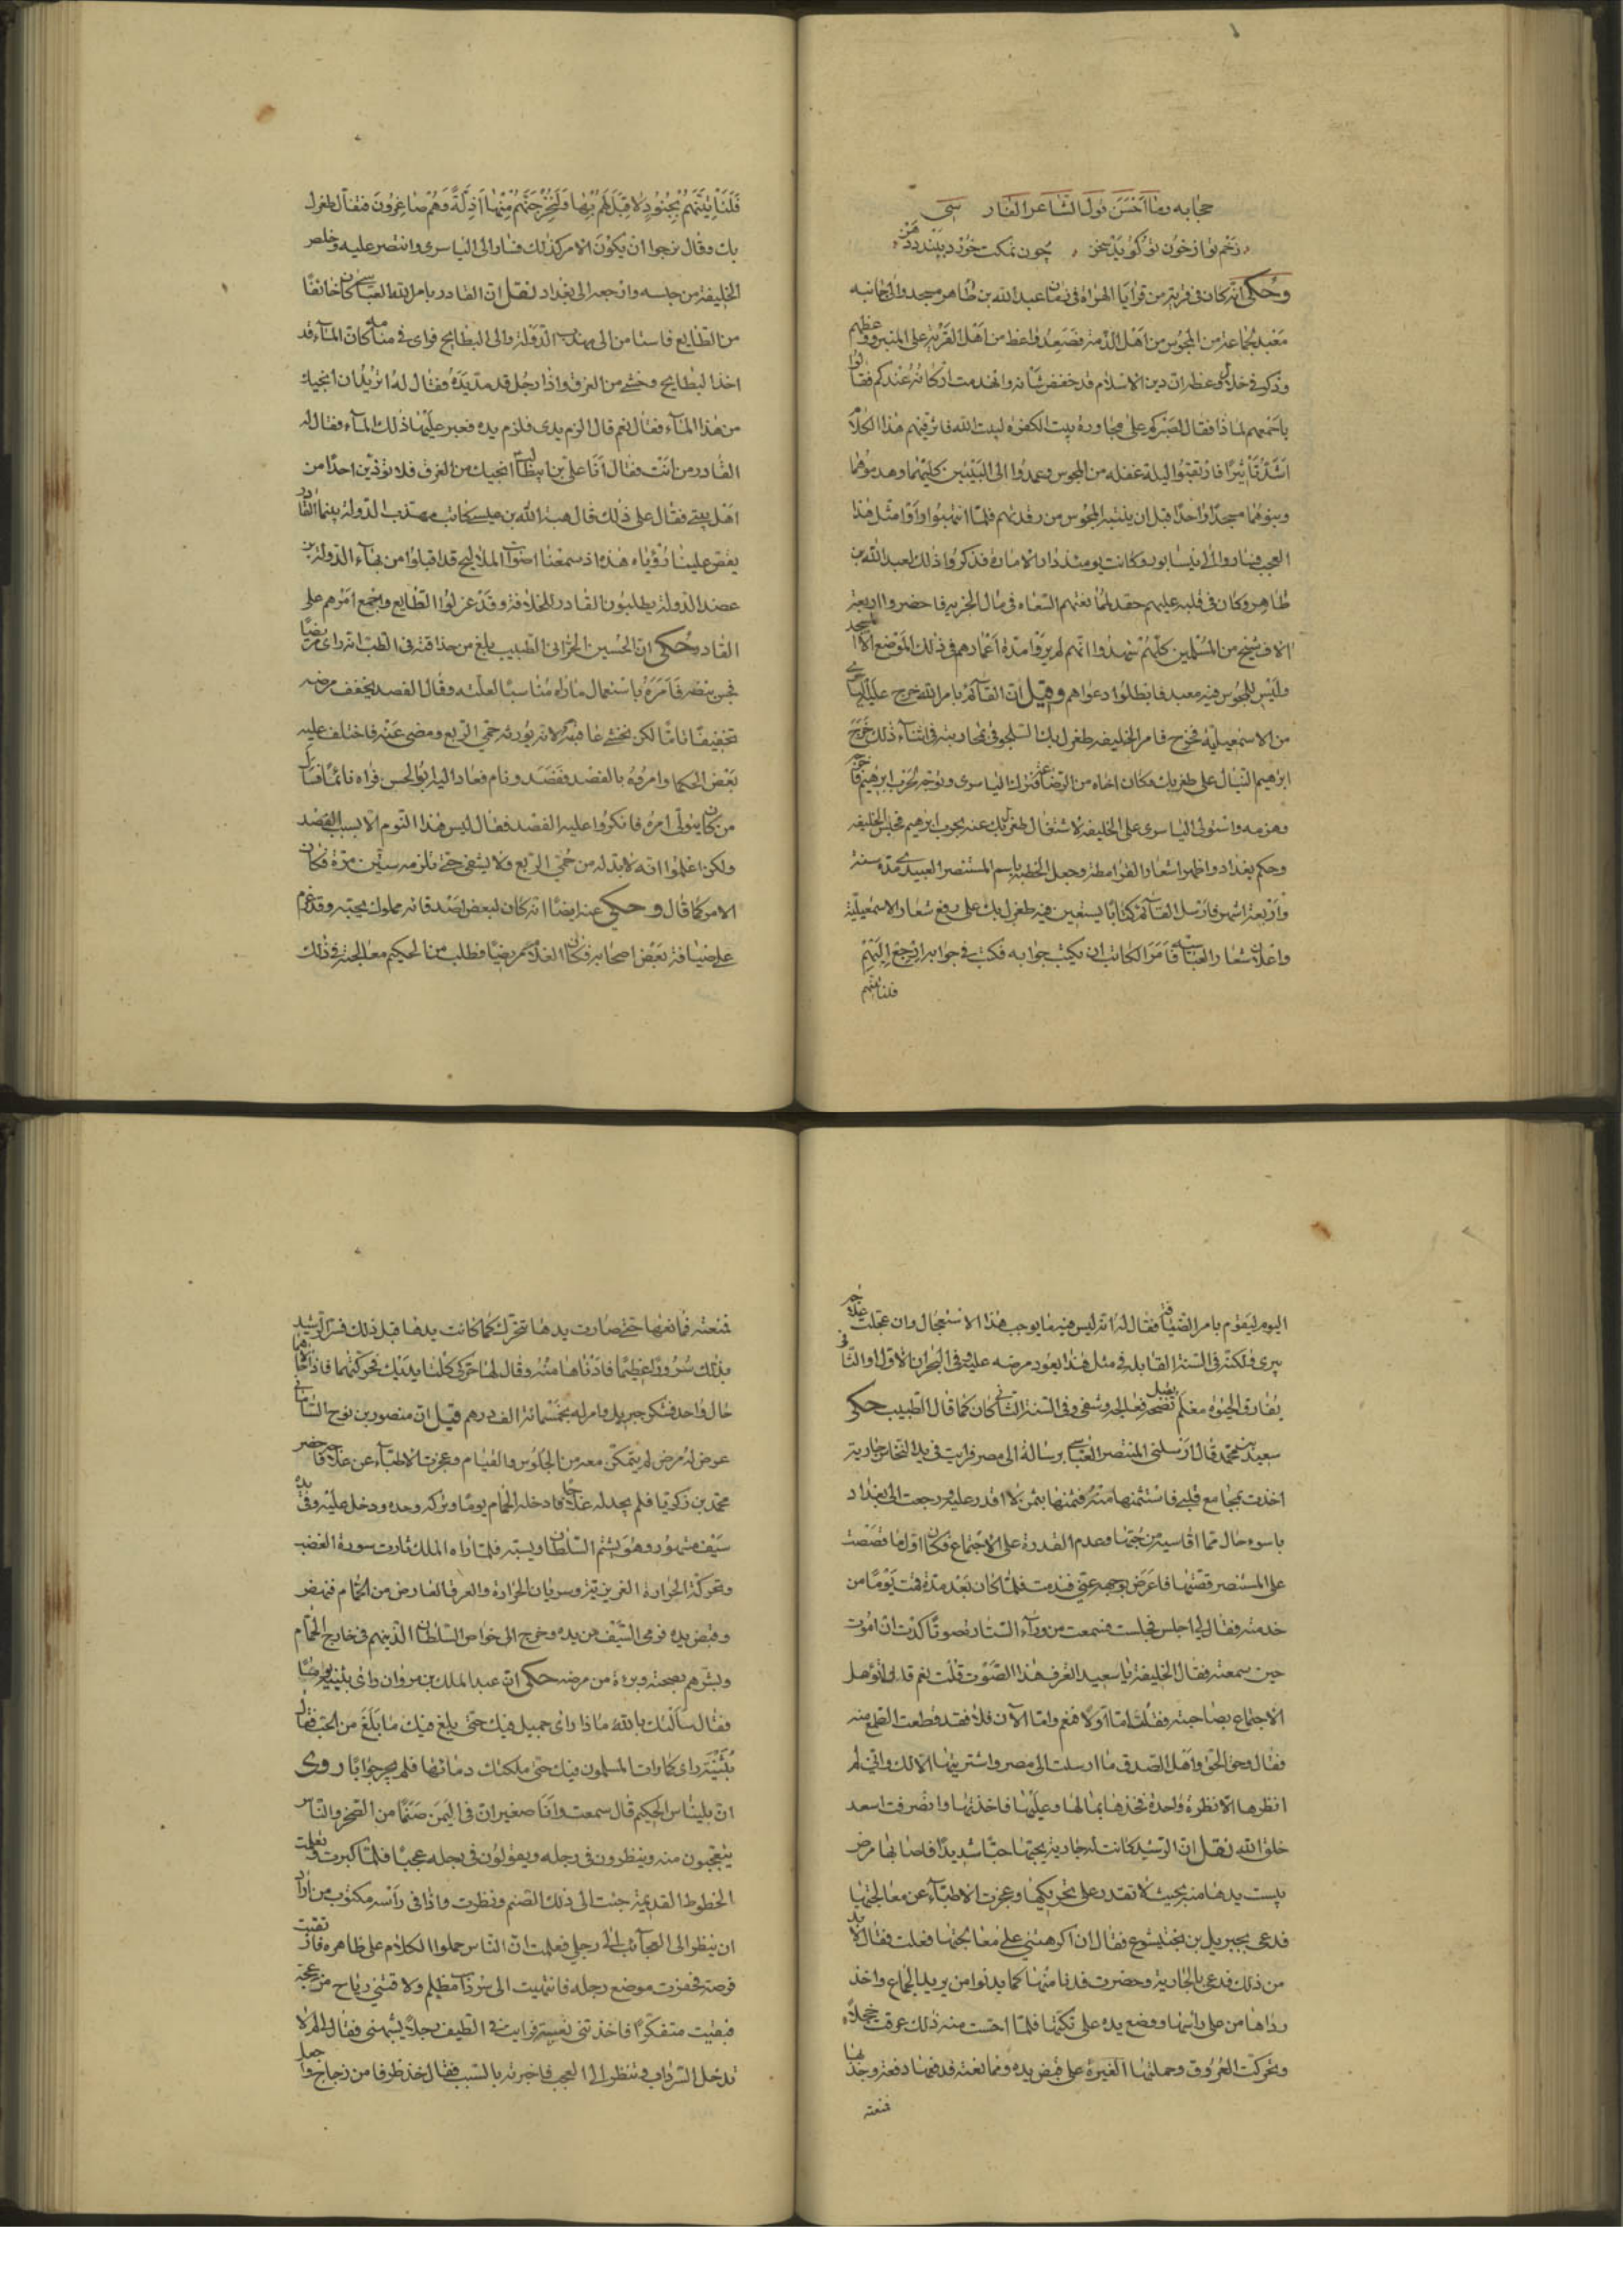 حجابه وما احسن قول الشاعر الفارسي
زخم تو از خون تو گويد سخن چون نمكت خورد ببندد دهن
وحكى انه كان فى قرية من قرايا الهراة فى زمان عبد الله بن طاهر مسجد والى جانبه
معبد لجماعة من المجوس من اهل الذمة فصعد واعظ من اهل القرية على المنبر ووعظهم
وذكر فى خلال وعظه ان دين الاسلام قد خفض شانه وانهدمت اركانه عندكم فقالوا
باجمعهم لماذا فقال لصبركم على مجاورة بيت الكفرة لبيت الله فاثر فيهم هذا الكلام
اشد تاثيرا فارتقبوا ليلة غفلة من المجوس وعمدوا الى البيتين كليهما وهدموهما
وبنوهما مسجدا واحدا قبل ان ينتبه المجوس من رقدتهم فلما انتبهوا وراوا مثل هذا
العجب فساروا الى نيسابور وكانت يومئذ دار الامارة فذكروا ذلك لعبد الله بن
طاهر وكان فى قلبه عليهم حقد لممانعتهم السعاة فى مال الجزية فاحضروا اربعة
الاف شيخ من المسلمين كلهم شهدوا انهم لم يروا مدة اعمارهم فى ذلك الموضع الا المسجد
وليس للمجوس فيه معبد فابطلوا دعواهم وقيل ان القائم بامر الله خرج عليه البساسيرى
من الاسمعيلية فخرج فامر الخليفة طغرل بك السلجوقى بمحاربته فى اثناء ذلك خرج
ابرهيم النيال على طغرلبك وكان اخاه من الرضاعة فترك البساسيرى وتوجه لحرب ابرهيم فاخرجه
وهزمه واستولى البساسيرى على الخليفة لاشتغال طغرلبك عنه بحرب ابرهيم فحبس الخليفة
وحكم بغداد واظهر اشعار القرامطة وجعل الخطبة باسم المستنصر العبيدى مدة سنة
واربعة اشهر فارسل القائم كتابا يستعين فيه طغرل بك على رفع شعار الاسمعيلية
واعلان شعار العباسية فامر الكاتب ان يكتب جوابه فكتب فى جوابه ارجع اليهم
فلناتينهم
فَلَنَأْتِيَنَّهُمْ بِجُنُودٍ لَا قِبَلَ لَهُمْ بِهَا وَلَنُخْرِجَنَّهُمْ مِنْهَا اَذِلَّةً وَهُمْ صَاغِرُونَ فتفأل طغرل
بك وقال نرجوا ان يكون الامر كذلك فسار الى البساسيرى وانتصر عليه وخلص
الخليفة من حبسه وارجعه الى بغداد نقل ان القادر بامر الله العباسى كان خائفا
من الطايع فاستامن الى مهذب الدولة والى البطايح فراى فى منامه كان الماء قد
اخذ البطايح وخشى من الغرق واذا رجل قد مد يده وقال له اتريد ان انجيك
من هذا الماء فقال نعم قال الزم يدى فلزم يده فعبر عليها ذلك الماء فقال له
القادر من انت فقال انا على بن ابيطالب انجيك من الغرق فلا تؤذين احدا من
اهل بيتى فقال على ذلك قال هبة الله بن عيسى كاتب مهذب الدولة بينما القادر
يقص علينا رؤياه هذه اذ سمعنا اصوات الملاليح قد اقبلوا من بهاء الدولة بن
عضد الدولة يطلبون القادر للخلافة وقد عزلوا الطايع واجمع امرهم على
القادر حكى ان الحسين الحرانى الطبيب بلغ من حذاقته فى الطب انه راى مريضا
فجس نبضه فامره باستعمال ما راه مناسبا لعلته وقال الفصد يخفف مرضه
تخفيفا تاما لكن نخشى عاقبته لانه يورثه حمى الربع ومضى عنه فاختلف عليه
بعض الحكما وامروه بالفصد ففصد ونام فعاد اليه ابو الحسن فراه نائما فسال
من كان يتولى امره فانكروا عليه الفصد فقال ليس هذا النوم الا بسبب الفصد
ولكن اعلموا انه لا بد له من حمى الربع ولا يشفى حتى تلزمه ستين مرة فكان
الامر كما قال وحكى عنه ايضا انه كان لبعض اصدقائه مملوك يحبه وقد عزم
على ضيافة بعض اصحابه فكان الغلام مريضا فطلب من الحكيم معالجته فى ذلك
اليوم ليقوم بامر الضيافة فقال له انه ليس فيه ما يوجب هذا الاستعجال وان عجلت علاجه
يبرى ولكنه فى السنة القابلة فى مثل هذا يعود مرضه عليه وفى البحران الاول او الثانى
يفارق الحيوة فلم يقبل نصحه فعالجه وشفى وفى السنة الثانية كان كما قال الطبيب حكى
سعيد بن محمد قال ارسلنى المنتصر العباسى برسالة الى مصر فرايت فى يد النخاس جارية
اخذت بمجامع قلبى فاستثمنتها منه فثمنها بثمن لا اقدر عليه ورجعت الى بغداد
باسوء حال مما اقاسيه من حبها وعدم القدرة على الاجتماع فكان اول ما قصصت
على المستنصر قصتها فاعرض بوجهه عنى فندمت فلما كان بعد مدة قمت يوما من
خدمته فقال لى اجلس فجلست فسمعت من وراء الستار صوتا كدت ان اموت
حين سمعته فقال الخليفة يا سعيد اتعرف هذا الصوت قلت نعم قد اتؤمل
الاجتماع بصاحبته فقلت اما اولا فنعم واما الآن فلا فقد قطعت الطمع منه
فقال وحق الحق واهل الصدق ما ارسلت الى مصر واشتريتها الا لك وانى لم
انظرها الا نظرة واحدة فخذها بما لها وعليها فاخذتها وانصرفت اسعد
خلق الله نقل ان الرشيد كانت له جارية يحبها حبا شديدا فاصابها مرض
يبست يدها منه بحيث لا تقدر على تحريكها وعجزت الاطباء عن معالجتها
فدعى بجبريل بن بختيشوع فقال ان اكرهتنى على معالجتها فعلت فقال لا بد
من ذلك فدعى بالجارية وحضرت فدنا منها كما يدنوا من يريد الجماع واخذ
رداها من على راسها ووضع يده على تكتها فلما احست منه ذلك عرقت خجلا
وتحركت العروق وحملتها الغيرة على قبض يده وممانعته فدفعها دفعة وجذبها
فمنعته
فمنعته فمانعها حتى صارت يدها تتحرك كما كانت يدها قبل ذلك فسر الرشيد
بذلك سرورا عظيما فادناها منه وقال لها حركى كلتا يديك فحركتهما فاذا هما
حال واحد فشكر جبريل وامر له بخمسمائة الف درهم قيل ان منصور بن نوح السامانى
عرض له مرض لم يتمكن معه من الجلوس والقيام وعجزت الاطباء عن علاجه فاحضر
محمد بن زكريا فلم يجد له علاجا فادخله الحمام يوما وتركه وحده ودخل عليه وفى يده
سيف مشهور وهو يشتم السلطان ويسبه فلما راه الملك ثارت سورة الغضب
وتحركت الحرارة الغريزية وسريان الحرارة والعرق العارض من الحمام فنهض
وقبض يده فرمى السيف من يده وخرج الى خواص السلطان الذينهم فى خارج الحمام
وبشرهم بصحته وبرءه من مرضه حكى ان عبد الملك بن مروان راى بثينة يوما
فقال سالتك بالله ماذا راى جميل فيك حتى بلغ فيك ما بلغ من الحب فقالت
بثينة راى كما رات المسلمون فيك حتى ملكتك دمائها فلم يحر جوابا روى
ان بليناس الحكيم قال سمعت وانا صغير ان فى اليمن صنما من الصخر والناس
يتعجبون منه وينظرون فى رجله ويقولون فى رجله عجبا فلما كبرت وتعلمت
الخطوط القديمة جئت الى ذلك الصنم ونظرت واذا فى راسه مكتوب من اراد
ان ينظر الى العجائب الى رجلى فعلمت ان الناس حملوا الكلام على ظاهره فارتقبت
فرصة فحفرت موضع رجله فانتهيت الى سرداب مظلم ولاقتنى رياح مزعجة
فبقيت متفكرا فاخذتنى نعسة فرايت فى الطيف رجلا يشبهنى فقال لى لم لا
تدخل السرداب وتنظر الى العجب فاخبرته بالسبب فقال خذ ظرفا من زجاج واجعل